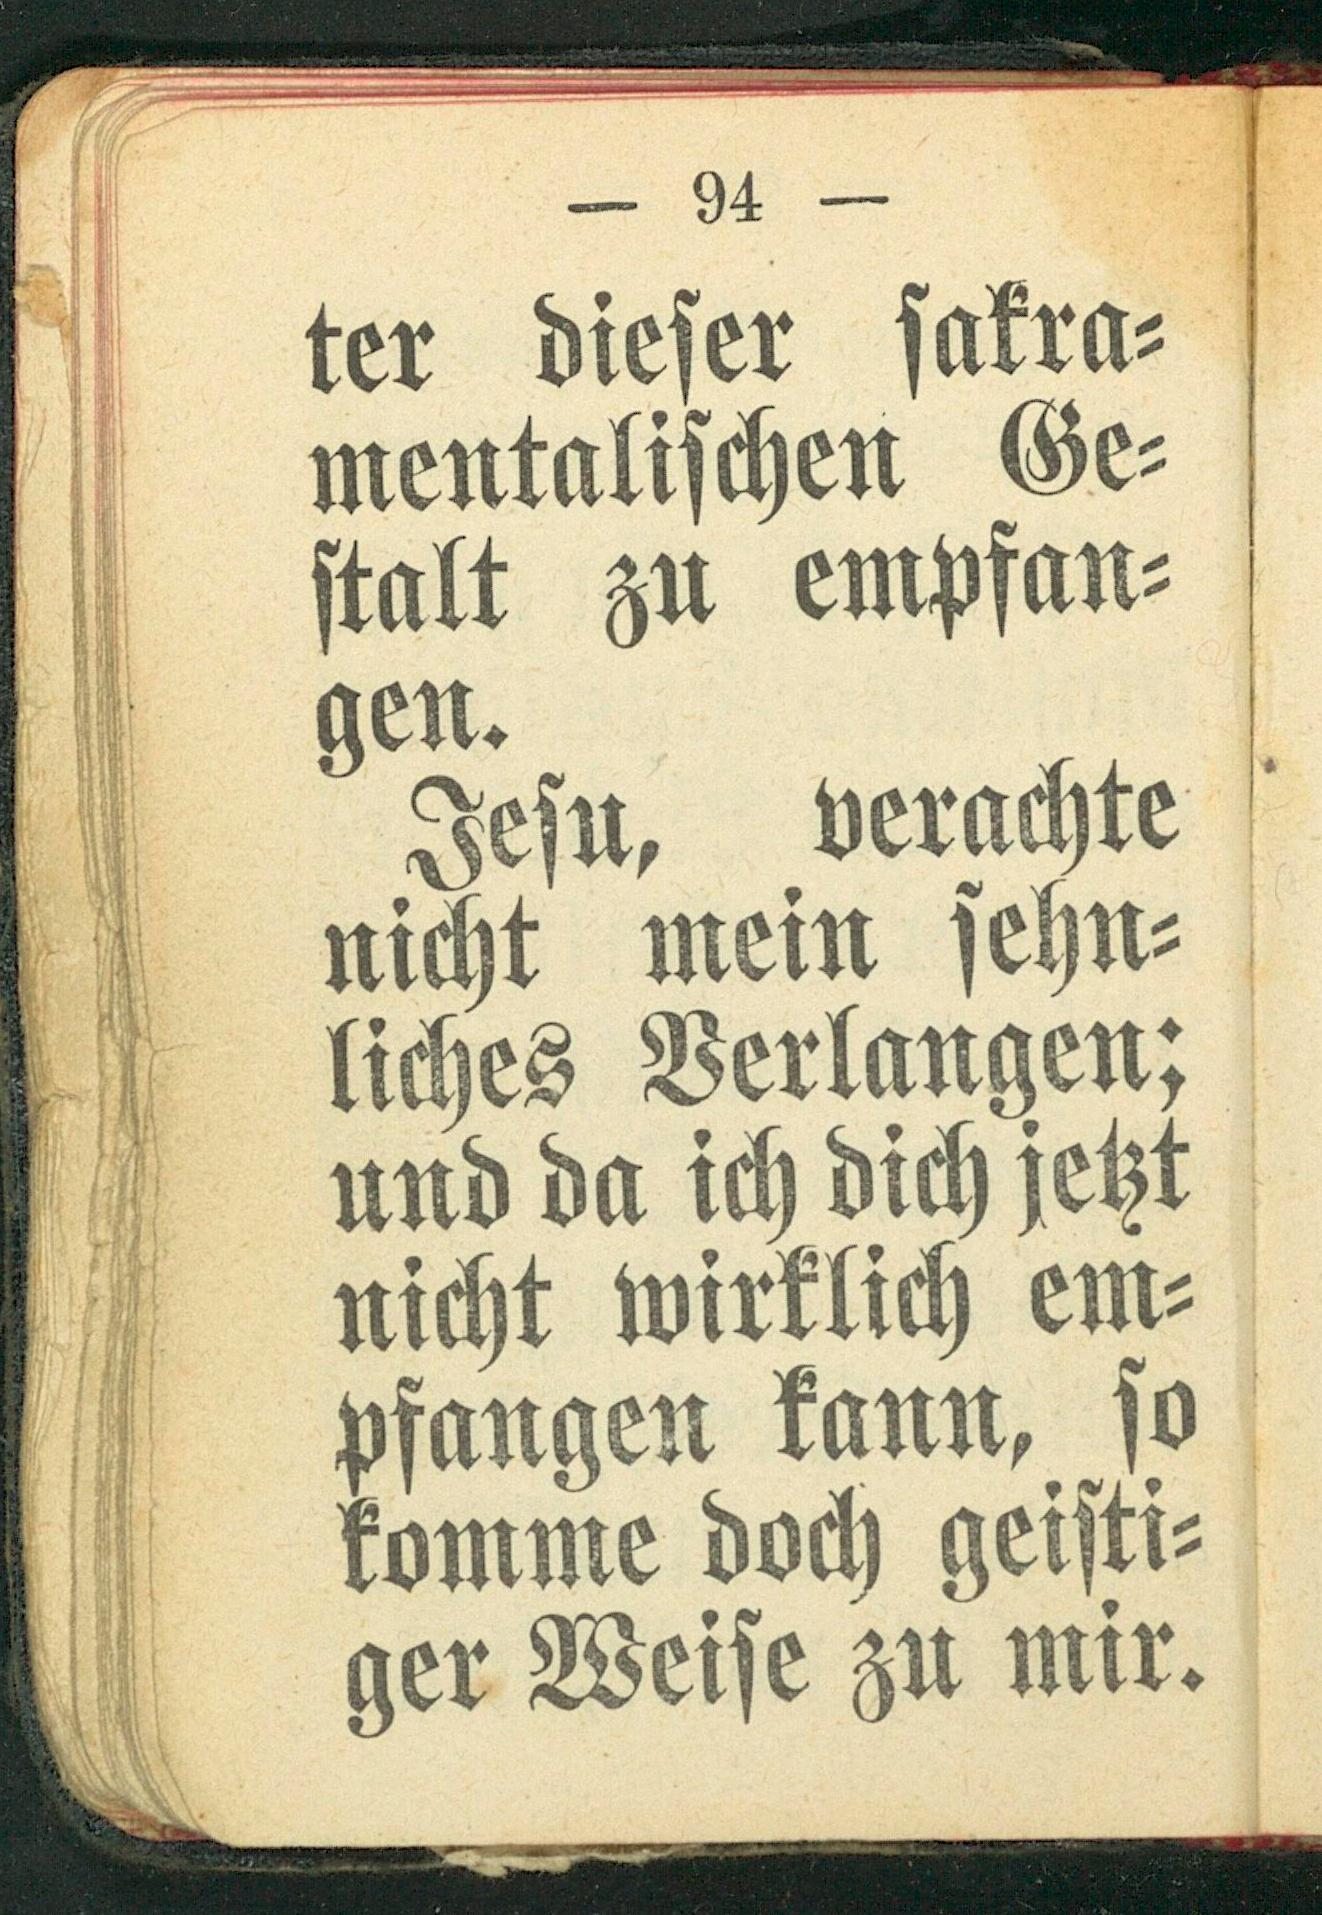 — 94 —
ter dieser sakra-
mentalischen Ge-
stalt zu empfan-
gen.
Jesu, verachte
nicht mein sehn-
liches Verlangen;
und da ich dich jetzt
nicht wirklich em-
pfangen kann, so
komme doch geisti-
ger Weise zu mir.